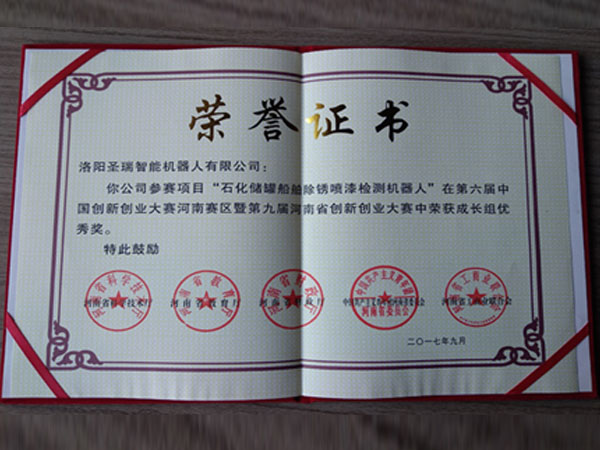 荣誉证书
洛阳圣瑞智能机器人有限公司：
你公司参赛项目“石化储罐船舶除锈喷漆检测机器人”在第六届中
国创新创业大赛河南赛区暨第九届河南省创新创业大赛中荣获成长组优
秀奖。
特此鼓励
河南省科学技术厅 河南省教育厅 河南省财政厅 河南省委员会 河南省工商业联合会
二〇一七年九月